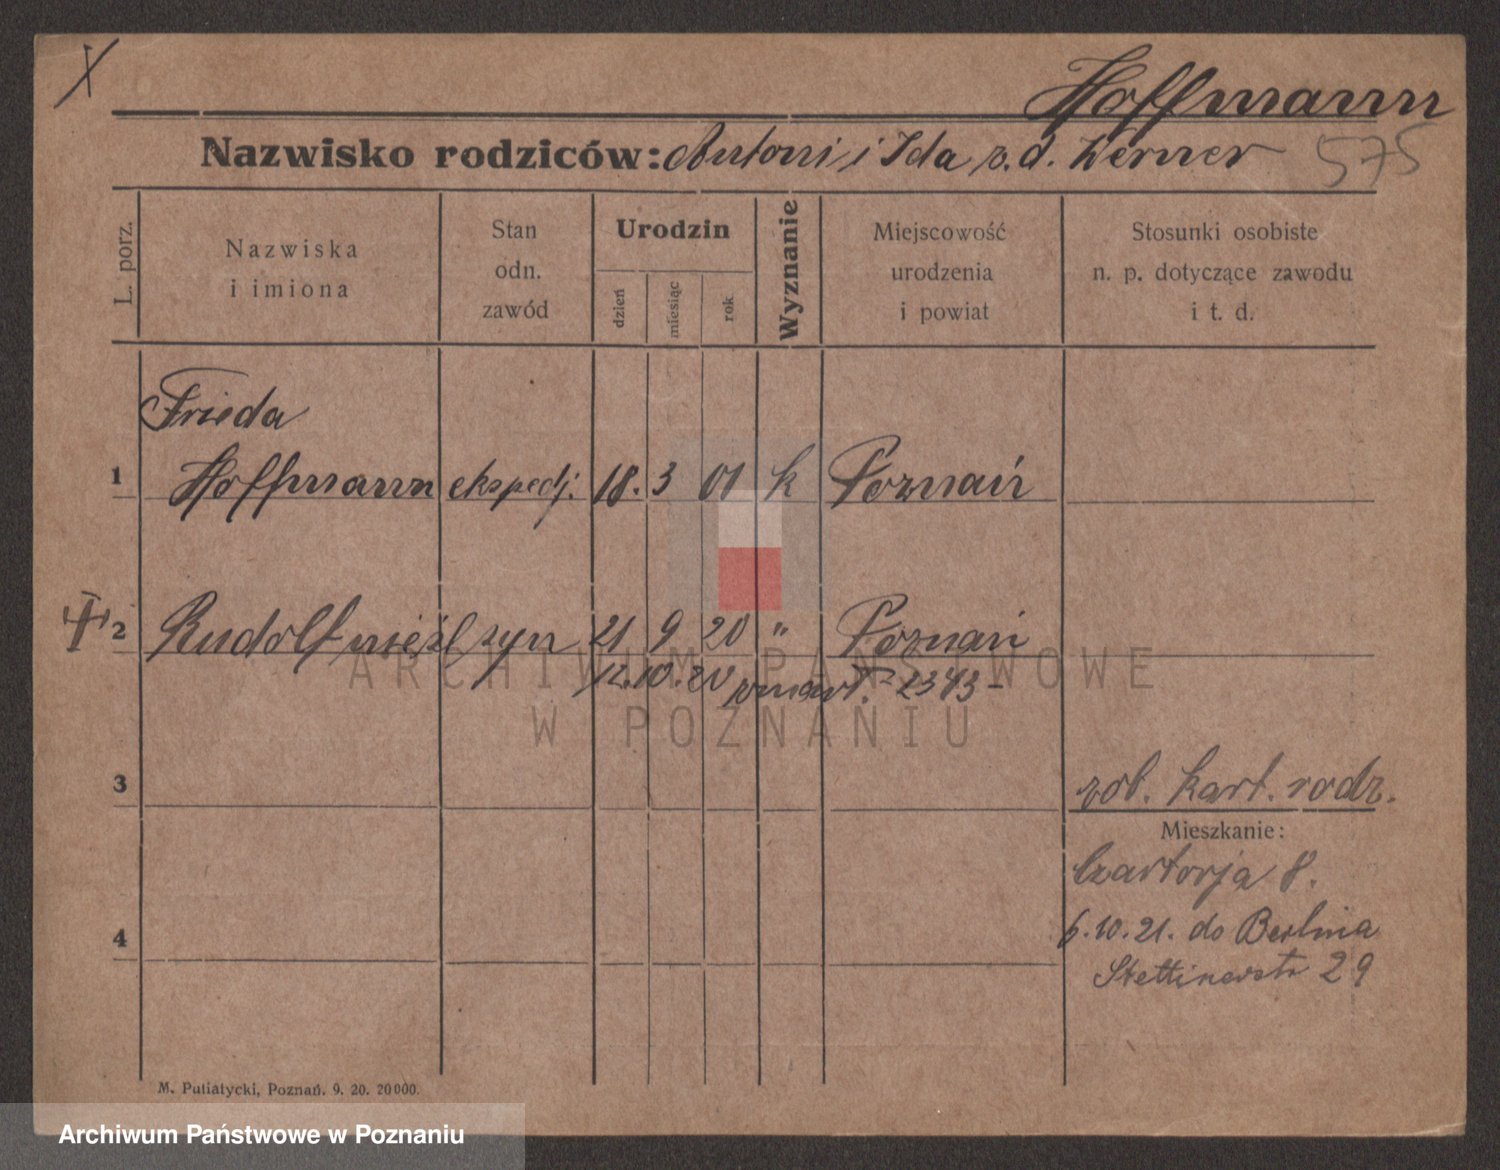 X
Hoffmann
Nazwisko rodziców: Antoni i Ida z. d. Werner 575
L. porz.
Nazwiska i imiona
Stan odn. zawód
Urodzin
dzień miesiąc rok
Wyznanie
Miejscowość urodzenia i powiat
Stosunki osobiste n. p. dotyczące zawodu i t. d.
Frieda
1 Hoffmann ekspedj. 18. 3 01 k Poznań
2 Rudolf nieśl syn 21 9 20 " Poznań
12.10.20 zmart. 2343
3
zob. kart. rodz.
Mieszkanie:
Czartorja 8.
4
6.10.21. do Berlina
Stettinerstr 29
M. Putiatycki, Poznań. 9. 20. 20000.
ARCHIWUM PAŃSTWOWE
W POZNANIU
Archiwum Państwowe w Poznaniu